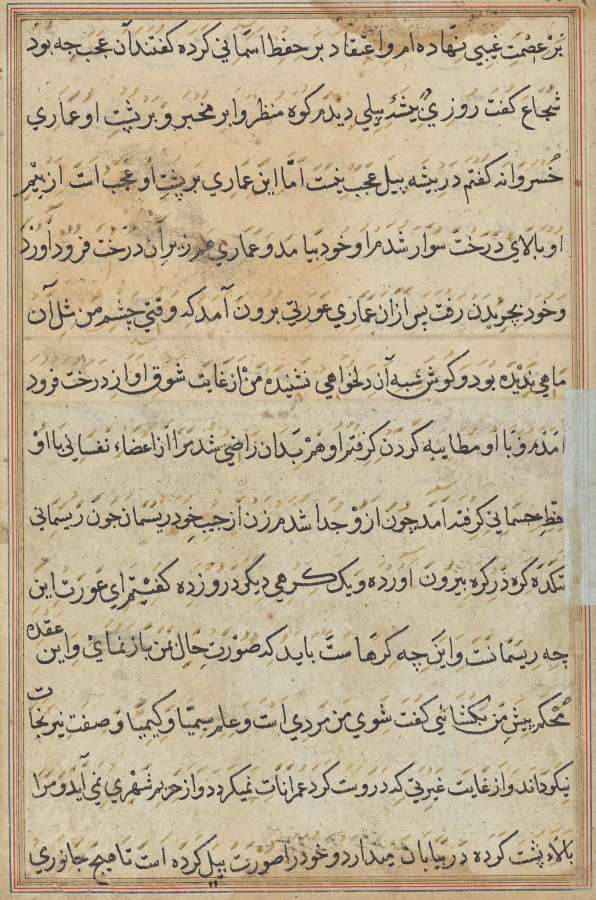 بَرْ عصْمَتِ غیبی نهاده ام و اعتقاد بر حفظ اسمانی کرده کفتند آن عجب چه بود
شجاع کفت روزی در بیشهٔ پیلی دیدم کوه منظر و ابر مخبر و بر پشت او عماری
خُسروانه کفتم در بیشه پیل عجب نیست امّا این عماری بر پشت او عجب است از بیم
او بالای درخت سوار شدم او خود بیامد و عماری هم زیر آن درخت فرود آورد
و خود بچریدن رفت پس ازان عماری عورتی برون آمد که وقتی چشم من مثل آن
ماهی ندیده بود و کوش شبه آن دلخواهی نشنیده من از غایت شوق او از درخت فرود
امدم و با او مطایبه کردن کرفتم او هم بدان راضی شد مرا از اعضاء نفسانی با او
حظّ جسمانی کرفته امد چون ازو جدا شدم زن از جیب خود ریسمان چون ریسمانی
تکده کره در کره بیرون اورده و یک کرهی دیکر درو زده کفتم ای عورت این
چه ریسمانست و این چه کرهاست باید که صورت حال من باز نمای و این عقده
مُحکم پیش من بکشائی کفت شوی من مردی است و علم سیمیا و کیمیا و صفت نیرنجات
نیکو داند و از غایت غیرتی که دروست کرد عمرانات نمیکردد و از حزیر شهری نمی آید و مرا
بالاء پشت کرده در بیابان میدارد و خود را صورت پیل کرده است تا هیچ جانوری